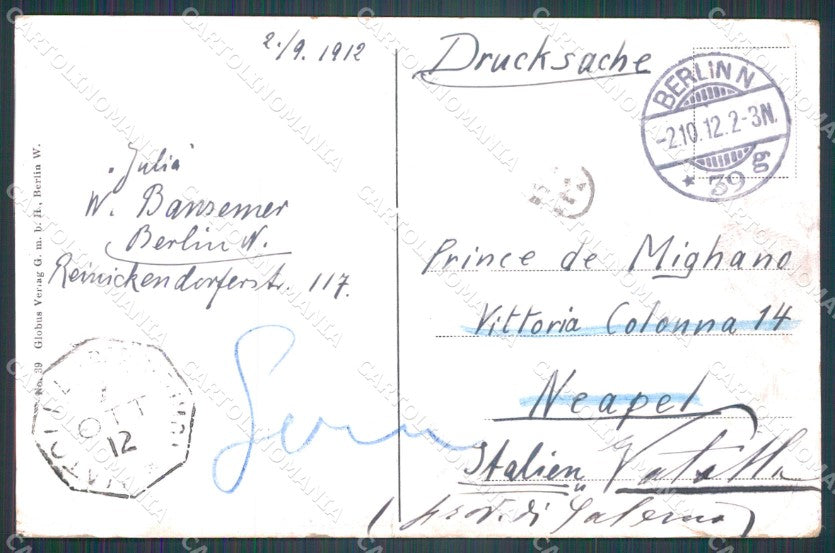 2./9. 1912
Drucksache
BERLIN N
-2.10.12.2-3N.
* 39 g
"Julia"
W. Bansemer
Berlin N.
Reinickendorferstr. 117.
Prince de Mighano
Vittoria Colonna 14
Neapel
Italien
(prov. di Salerno)
No. 39 Globus Verlag G. m. b. H., Berlin W.
OTT
12
CARTOLINOMANIA